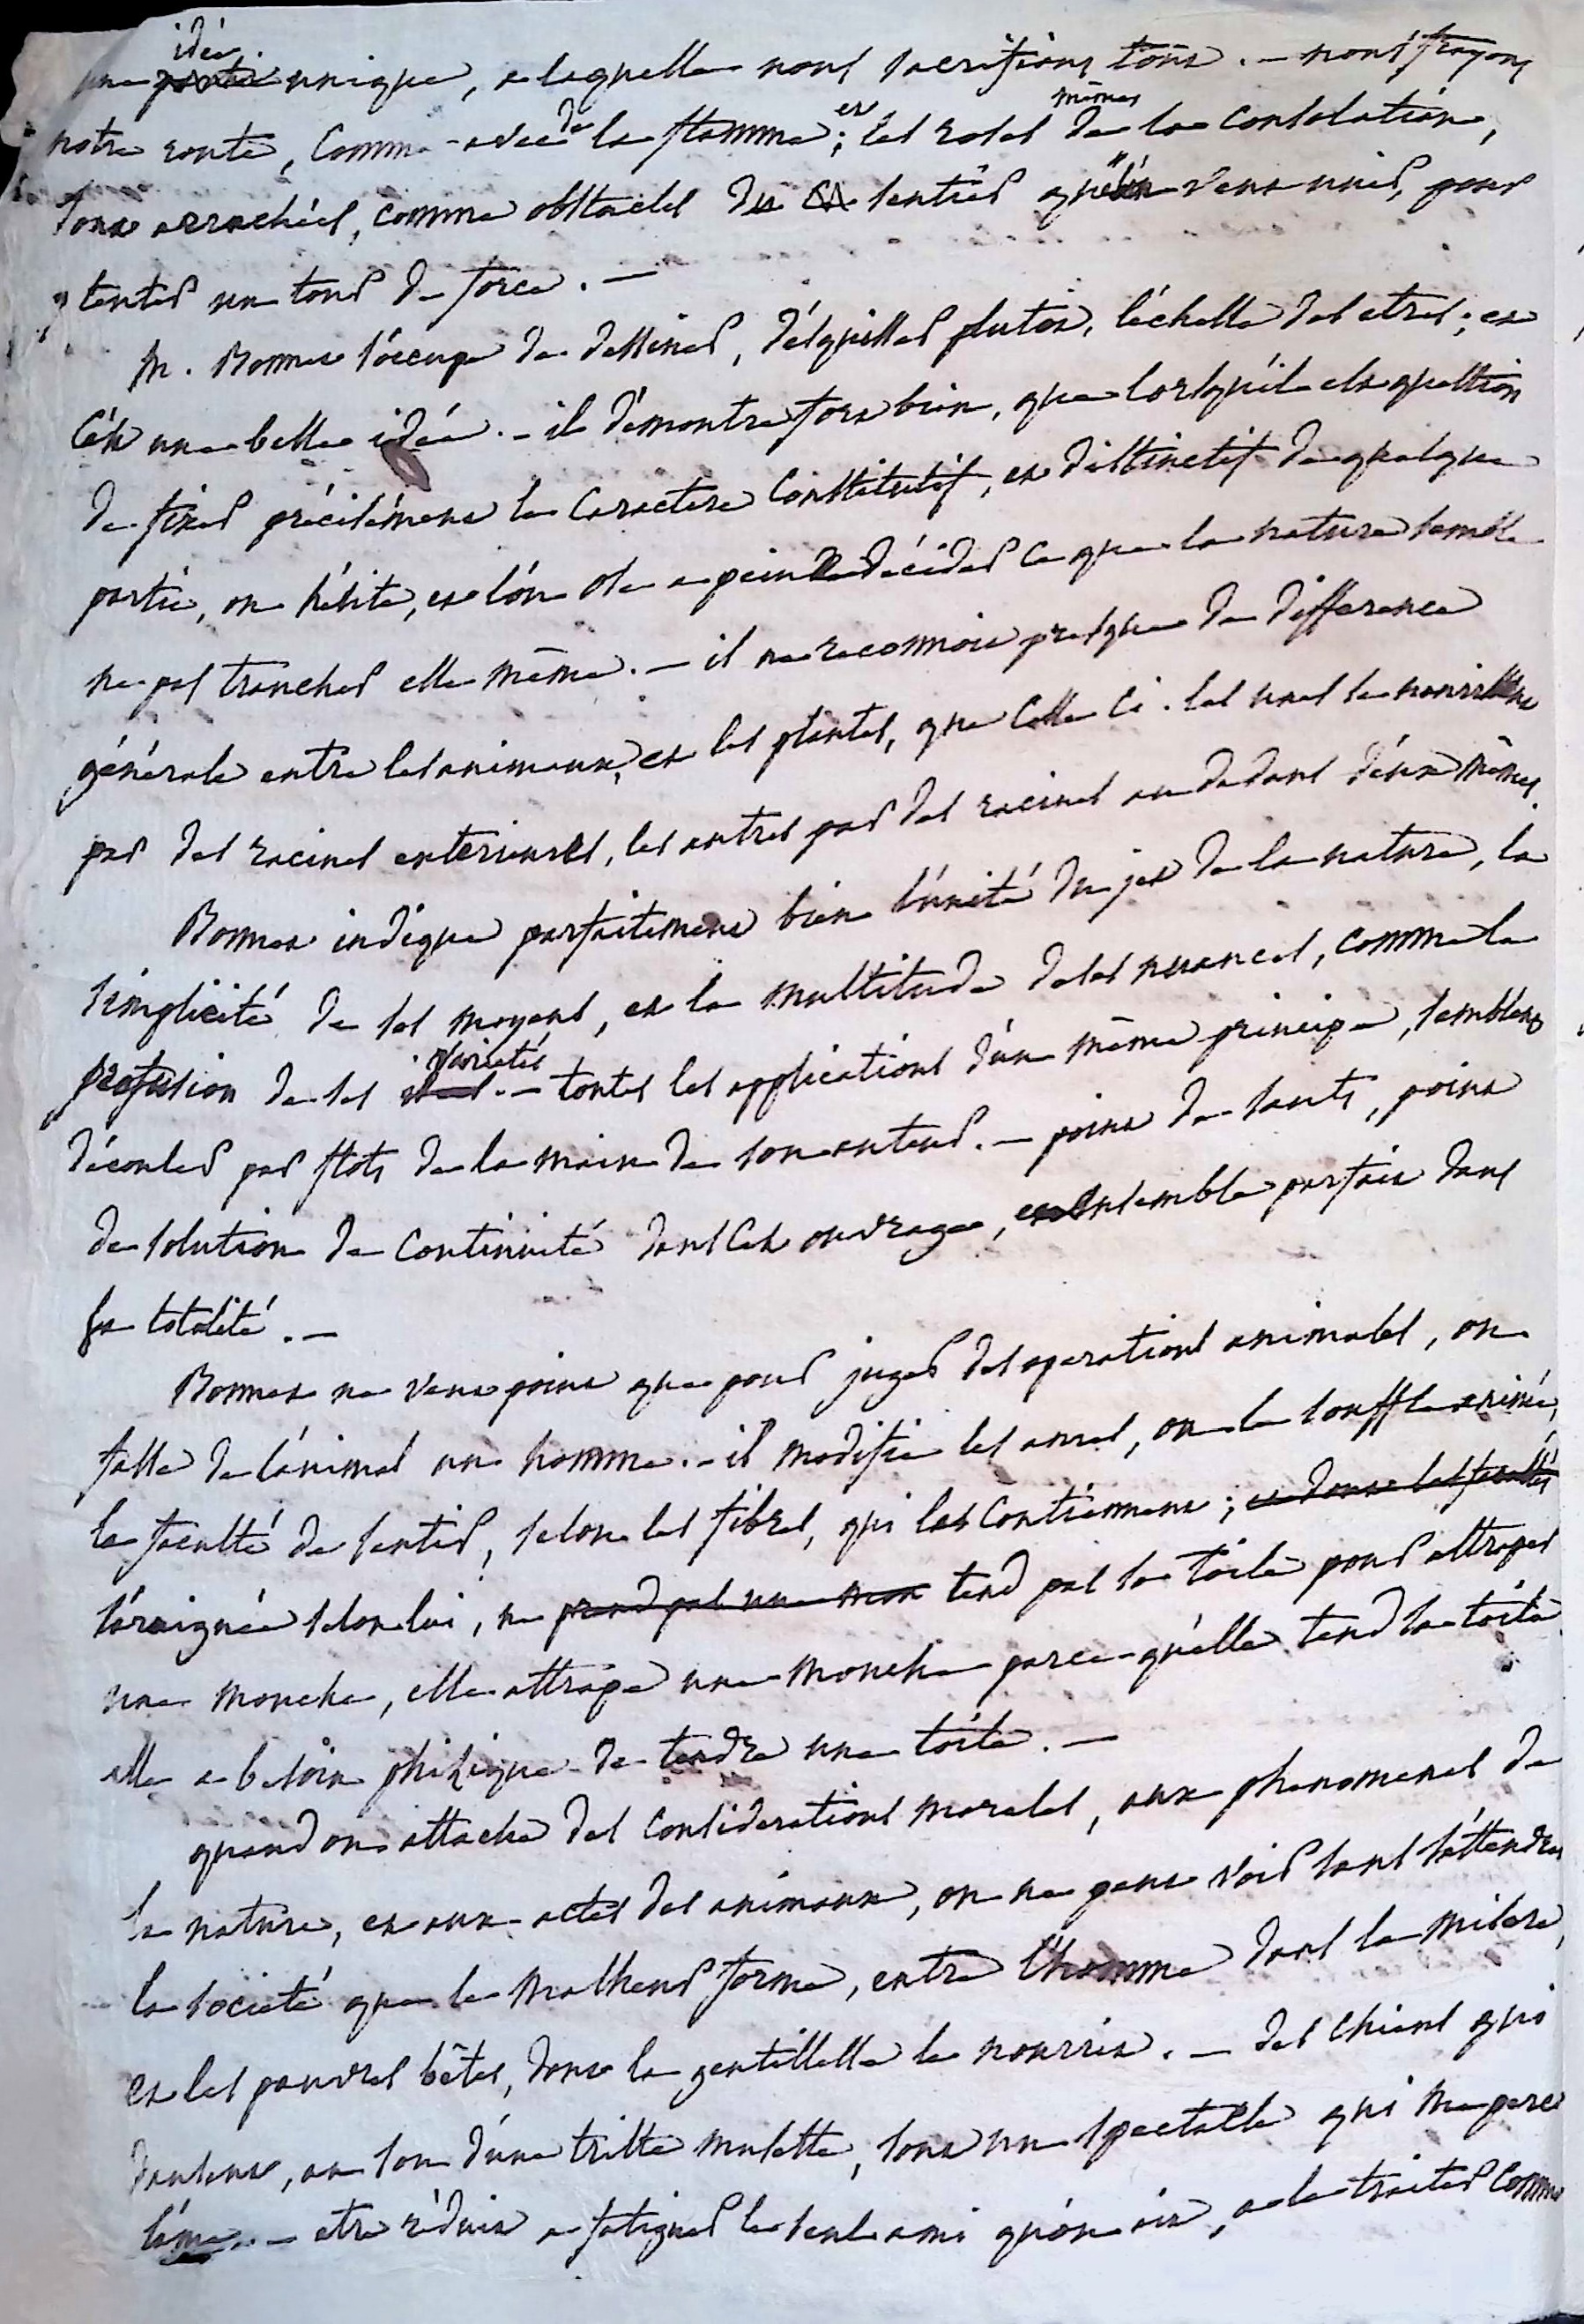 idée
une partie unique, a laquelle nous sacrifions tout. — nous frayons
notre route, comme avec de la flamme; et les roses mêmes de la consolation,
sont arrachées, comme obstacles du sentier qu'on veut unir, pour
tenter un tour de force. —
M. Bonnet s'occupe de dessiner, d'esquisser plutot, l'échelle des etres; et
c'est une belle idée. — il démontre fort bien, que lorsqu'il est question
de fixer précisément le caractere constitutif, et distinctif de quelque
partie, on hésite, et l'on ose a peine décider ce que la nature semble
ne pas trancher elle même. — il ne reconnoit presque de difference
générale entre les animaux, et les plantes, que celle ci. les unes se nourrissent
par des racines exterieures, les autres par des racines au dedans d'eux mêmes.
Bonnet indique parfaitement bien l'unité du jet de la nature, la
simplicité de ses moyens, et la multitude de ses nuances, comme la
profusion de ses variétés. — toutes les applications d'un même principe, semblent
découler par flots de la main de son auteur. — point de sauts, point
de solution de continuité dans cet ouvrage, ensemble parfait dans
sa totalité. —
Bonnet ne veut point que pour juger des operations animales, on
fasse de l'animal un homme. — il modifie les ames, ou le souffle animé,
la faculté de sentir, selon les fibres, qui les contiennent; et dont les facultés
l'araignée selon lui, ne prend pas une mou tend pas sa toile pour attraper
une mouche, elle attrape une mouche parce qu'elle tend sa toile.
elle a besoin phisique de tendre une toile. —
quand on attache des considerations morales, aux phenomenes de
la nature, et aux actes des animaux, on ne peut voir sans s'attendrir
la société que le malheur forme, entre l'homme dans la misere,
et les pauvres bêtes, dont la gentillesse le nourrit. — des chiens qui
dansent, au son d'une triste musette, sont un spectacle qui me perce
l'ame. — etre réduit a fatiguer le seul ami qu'on ait, a le traiter comme